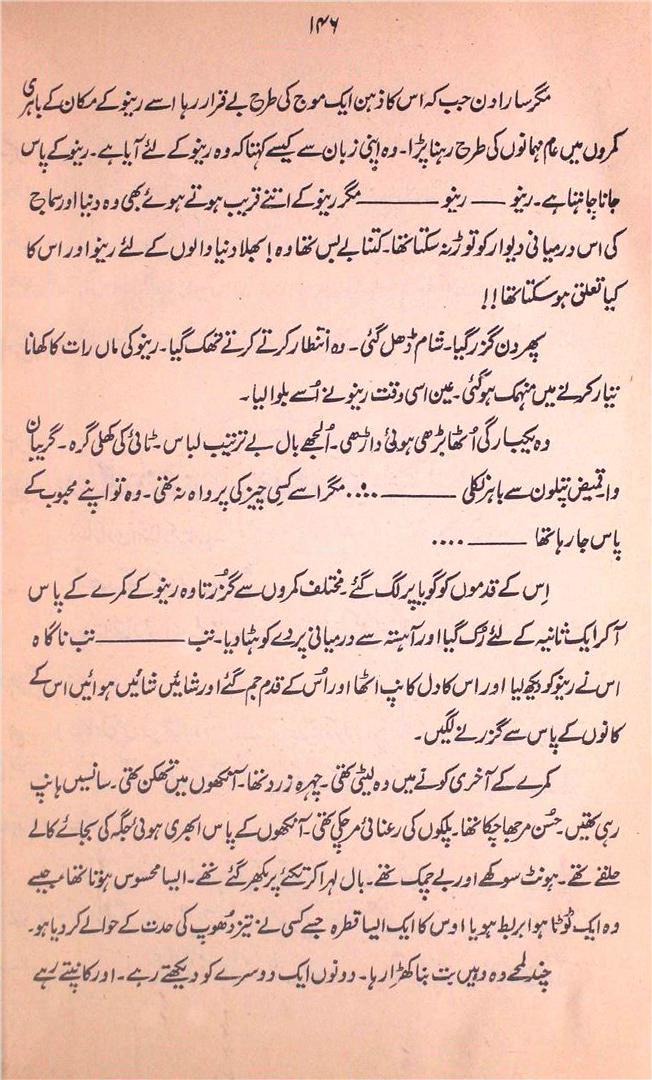 ۱۴۶
مگر سارا دن جب کہ اس کا ذہن ایک موج کی طرح بے قرار رہا اسے رینو کے مکان کے باہری
کمروں میں عام مہمانوں کی طرح رہنا پڑا۔ وہ اپنی زبان سے کیسے کہتا کہ وہ رینو کے لئے آیا ہے۔ رینو کے پاس
جانا چاہتا ہے۔ رینو —— رینو ———— مگر رینو کے اتنے قریب ہوتے ہوئے بھی وہ دنیا اور سماج
کی اس درمیانی دیوار کو توڑ نہ سکتا تھا۔ کتنا بے بس تھا وہ! بھلا دنیا والوں کے لئے رینو اور اس کا
کیا تعلق ہو سکتا تھا!!
پھر دن گزر گیا۔ شام ڈھل گئی۔ وہ انتظار کرتے کرتے تھک گیا۔ رینو کی ماں رات کا کھانا
تیار کرنے میں منہمک ہو گئی۔ عین اسی وقت رینو نے اُسے بلوا لیا۔
وہ یکبارگی اُٹھا بڑھی ہوئی داڑھی۔ اُلجھے بال بے ترتیب لباس۔ ٹائی کی کھلی گرہ۔ گریبان
وا قمیض پتلون سے باہر نکلی ———— .... مگر اسے کسی چیز کی پرواہ نہ تھی۔ وہ تو اپنے محبوب کے
پاس جا رہا تھا ——— ....
اِس کے قدموں کو گویا پر لگ گئے۔ مختلف کمروں سے گزرتا وہ رینو کے کمرے کے پاس
آ کر ایک ثانیہ کے لئے رُک گیا اور آہستہ سے درمیانی پردے کو ہٹا دیا۔ تب ———— تب ناگاہ
اس نے رینو کو دیکھ لیا اور اس کا دل کانپ اٹھا اور اُس کے قدم جم گئے اور شائیں شائیں ہوائیں اس کے
کانوں کے پاس سے گزرنے لگیں۔
کمرے کے آخری کونے میں وہ لیٹی تھی۔ چہرہ زرد تھا۔ آنکھوں میں تھکن تھی۔ سانسیں ہانپ
رہی تھیں۔ حُسن مرجھا چکا تھا۔ پلکوں کی رعنائی مر چکی تھی۔ آنکھوں کے پاس ابھری ہوئی جگہ کی بجائے کالے
حلقے تھے۔ ہونٹ سوکھے اور بے چمک تھے۔ بال لہرا کر تکئے پر بکھر گئے تھے۔ ایسا محسوس ہوتا تھا جیسے
وہ ایک ٹوٹا ہوا بربط ہو یا اوس کا ایک ایسا قطرہ جسے کسی نے تیز دُھوپ کی حدت کے حوالے کر دیا ہو۔
چند لمحے وہ وہیں بت بنا کھڑا رہا۔ دونوں ایک دوسرے کو دیکھتے رہے۔ اور کانپتے رہے